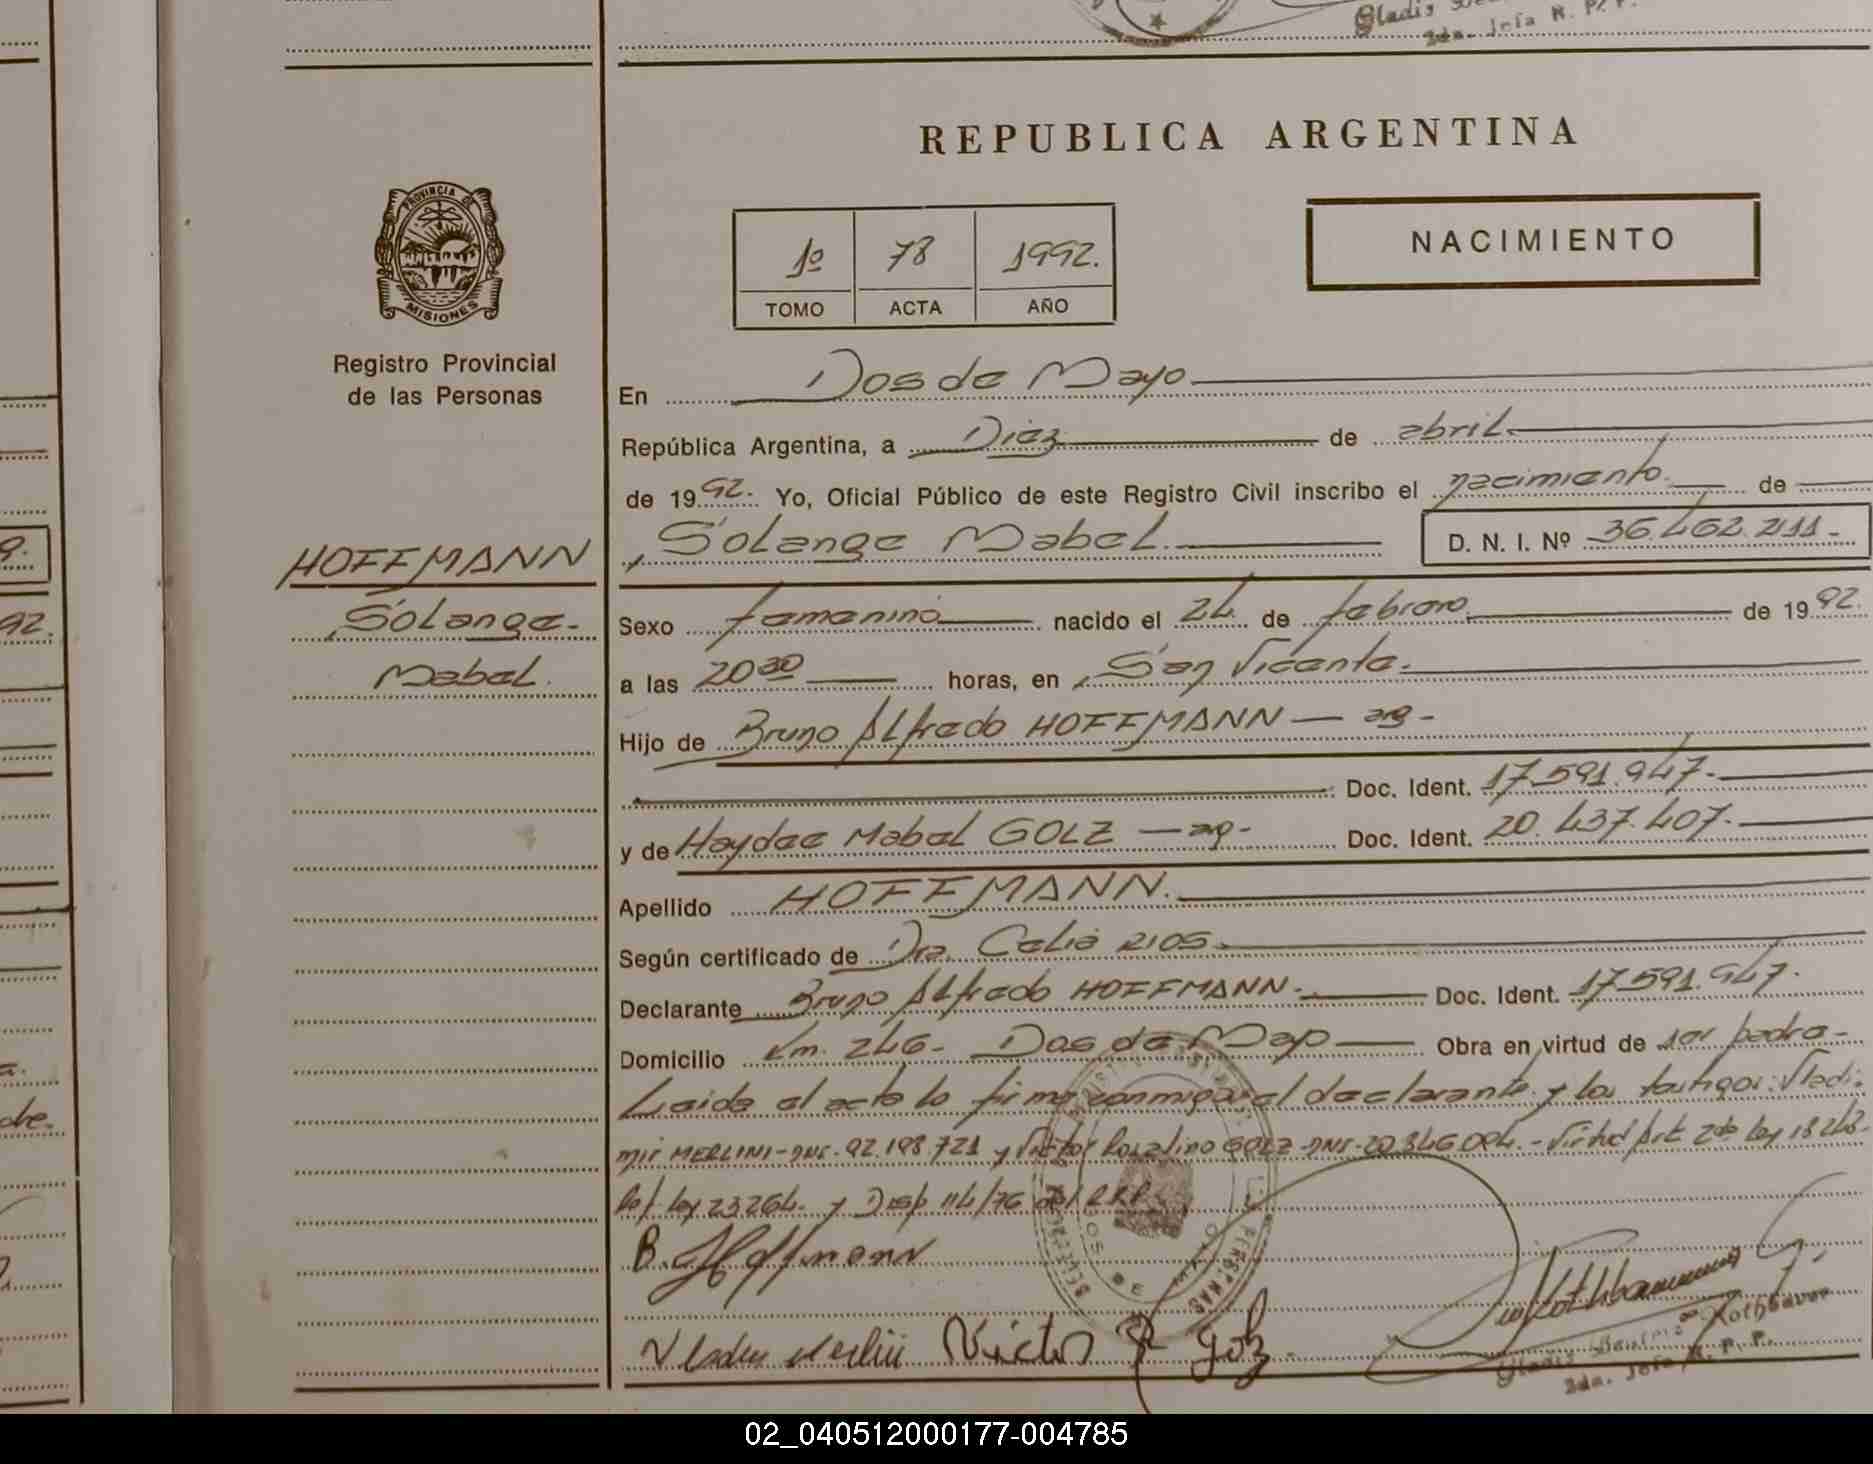 Gladis
2da. Jefa R. P. P.
REPUBLICA ARGENTINA
PROVINCIA DE
MISIONES
Registro Provincial
de las Personas
1º 78 1992.
TOMO ACTA AÑO
NACIMIENTO
En Dos de Mayo
República Argentina, a Diez de abril
de 1992. Yo, Oficial Público de este Registro Civil inscribo el nacimiento de
Solange Mabel. D. N. I. Nº 36.462.211.-
HOFFMANN
Solange-
Mabel.
Sexo femenino nacido el 24 de febrero de 1992.
a las 20 30 horas, en San Vicente.
Hijo de Bruno Alfredo HOFFMANN — arg-
Doc. Ident. 17.591.947.-
y de Haydee Mabel GOLZ — arg- Doc. Ident. 20.437.407.-
Apellido HOFFMANN.
Según certificado de Dra. Celia RIOS.
Declarante Bruno Alfredo HOFFMANN.- Doc. Ident. 17.591.947.
Domicilio Km. 246- Dos de Mayo Obra en virtud de ser padre-
Leida el acta la firma conmigo el declarante y los testigos: Vladi-
mir MERLINI-DNI-92.198.721 y Victor Rosalino GOLZ-DNI-20.346.004.- Virtud Art. 2do ley 18248-
ley 23264. y Disp 114/76 del R.R.P.
B. Hoffmann
Victor R Golz
Gladis Beatriz Rothbauer
2da. Jefa R. P. P.
02_040512000177-004785